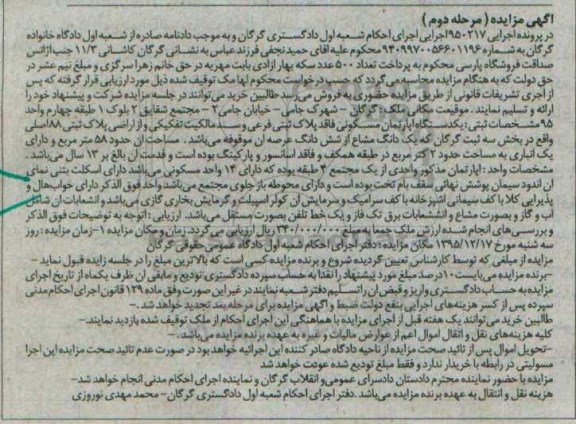 آگهی مزایده (مرحله دوم)
در پرونده اجرایی ۹۵۰۲۱۷ اجرایی اجرای احکام شعبه اول دادگستری گرگان و به موجب دادنامه صادره از شعبه اول دادگاه خانواده
گرگان به شماره ۹۴۰۹۹۷۰۰۵۶۶۰۱۱۹۶ محکوم علیه آقای حمید نجفی فرزند عباس به نشانی گرگان کاشانی ۱۱/۳ جنب آژانس
صداقت فروشگاه پارسی محکوم به پرداخت تعداد ۵۰۰ عدد سکه بهار آزادی بابت مهریه در حق خانم زهرا سرگزی و مبلغ نیم عشر در
حق دولت که به هنگام مزایده محاسبه می گردد که حسب درخواست محکوم لها ملک توقیف شده ذیل مورد ارزیابی قرار گرفته که پس
از اجری تشریفات قانونی از طریق مزایده حضوری به فروش می رسد طالبین خرید می توانند در جلسه مزایده شرکت و پیشنهاد خود را
ارائه و تسلیم نمایند. موقعیت مکانی ملک: گرگان - شهرک جامی - خیابان جامی ۲ - مجتمع شقایق ۲ بلوک ۱ طبقه چهارم واحد
۹۵ مشخصات ثبتی: یکدستگاه آپارتمان مسکونی فاقد پلاک ثبتی فرعی و سند مالکیت تفکیکی و از اراضی پلاک ثبتی ۸۸ اصلی
واقع در بخش سه ثبت گرگان که یک دانگ مشاع از شش دانگ عرصه آن موقوفه می باشد. مساحت آن حدود ۵۸ متر مربع و دارای
یک انباری به مساحت حدود ۲ کتر مربع در طبقه همکف و فاقد آسانسور و پارکینگ بوده است و قدمت آن بالغ بر ۱۳ سال می باشد.
مشخصات واحد: آپارتمان مذکور واحدی از یک مجتمع ۴ طبقه بوده که دارای ۱۴ واحد مسکونی می باشد دارای اسکلت بتنی نمای
آن اندود سیمان پوشش نهائی سقف بام تخت بوده است و دارای محوطه باز جلوی مجتمع می باشد واحد فوق الذکر دارای خواب هال و
پذیرایی کلا با کف سیمانی آشپزخانه با کف سرامیک و سرمایش آن کولر اسپیلت و گرمایش بخاری گازی می باشد و انشعابات آن شامل
آب و گاز و بصورت مشاع و انشعابات برق تک فاز و یک خط تلفن بصورت مستقل می باشد. ارزیابی: با توجه به توضیحات فوق الذکر
و بررسی های انجام شده ارزش ملک جمعا به مبلغ ۳۴۰/۰۰۰/۰۰۰ ریال ارزیابی می گردد. زمان و مکان مزایده ۱- زمان مزایده: روز
سه شنبه مورخ ۱۳۹۵/۱۲/۱۷ مکان مزایده: دفتر اجرای احکام شعبه اول دادگاه عمومی حقوقی گرگان
مزایده از مبلغی که توسط کارشناس تعیین گردیده شروع و برنده مزایده کسی است که بالاترین مبلغ را در جلسه زایده قبول نماید -
-برنده مزایده می بایست ۱۰ درصد مبلغ مورد پیشنهاد را نقدا به حساب سپرده دادگستری تودیع و مابقی آن ظرف یکماه از تاریخ اجرای
مزایده به حساب دادگستری واریز و قبض آن را تسلیم دفتر شعبه نمایند در غیر این صورت وفق ماده ۱۲۹ قانون اجرای احکام مدنی
سپرده پس از کسر هزینه های اجرایی بنفع دولت ضبط و آگهی مزایده برای مرحله بعد تجدید خواهد شد. -
طالبین خرید می توانند یک هفته قبل از اجرای مزایده با هماهنگی این اجرای احکام از ملک توقیف شده بازدید نمایند. -
کلیه هزینه های نقل و اتقال اموال اعم از عوارض مالیات و غیره به عهده برنده مزایده می باشد. -
-تحویل اموال پس از تائید صحت مزایده از ناحیه دادگاه صادر کننده این اجرائیه خواهد بود در صورت عدم تائید صحت مزایده این اجرا
مسولیتی در رابطه با خریدار ندارد و فقط مبلغ تودیع شده عودت خواهد شد
مزایده با حضور نماینده محترم دادستان دادسرای عمومی و انقلاب گرگان و نماینده اجرای احکام مدنی انجام خواهد شد-
هزینه نقل و انتقال به عهده برنده مزایده می باشد. دفتر اجرای احکام شعبه اول دادگستری گرگان - محمد مهدی نوروزی